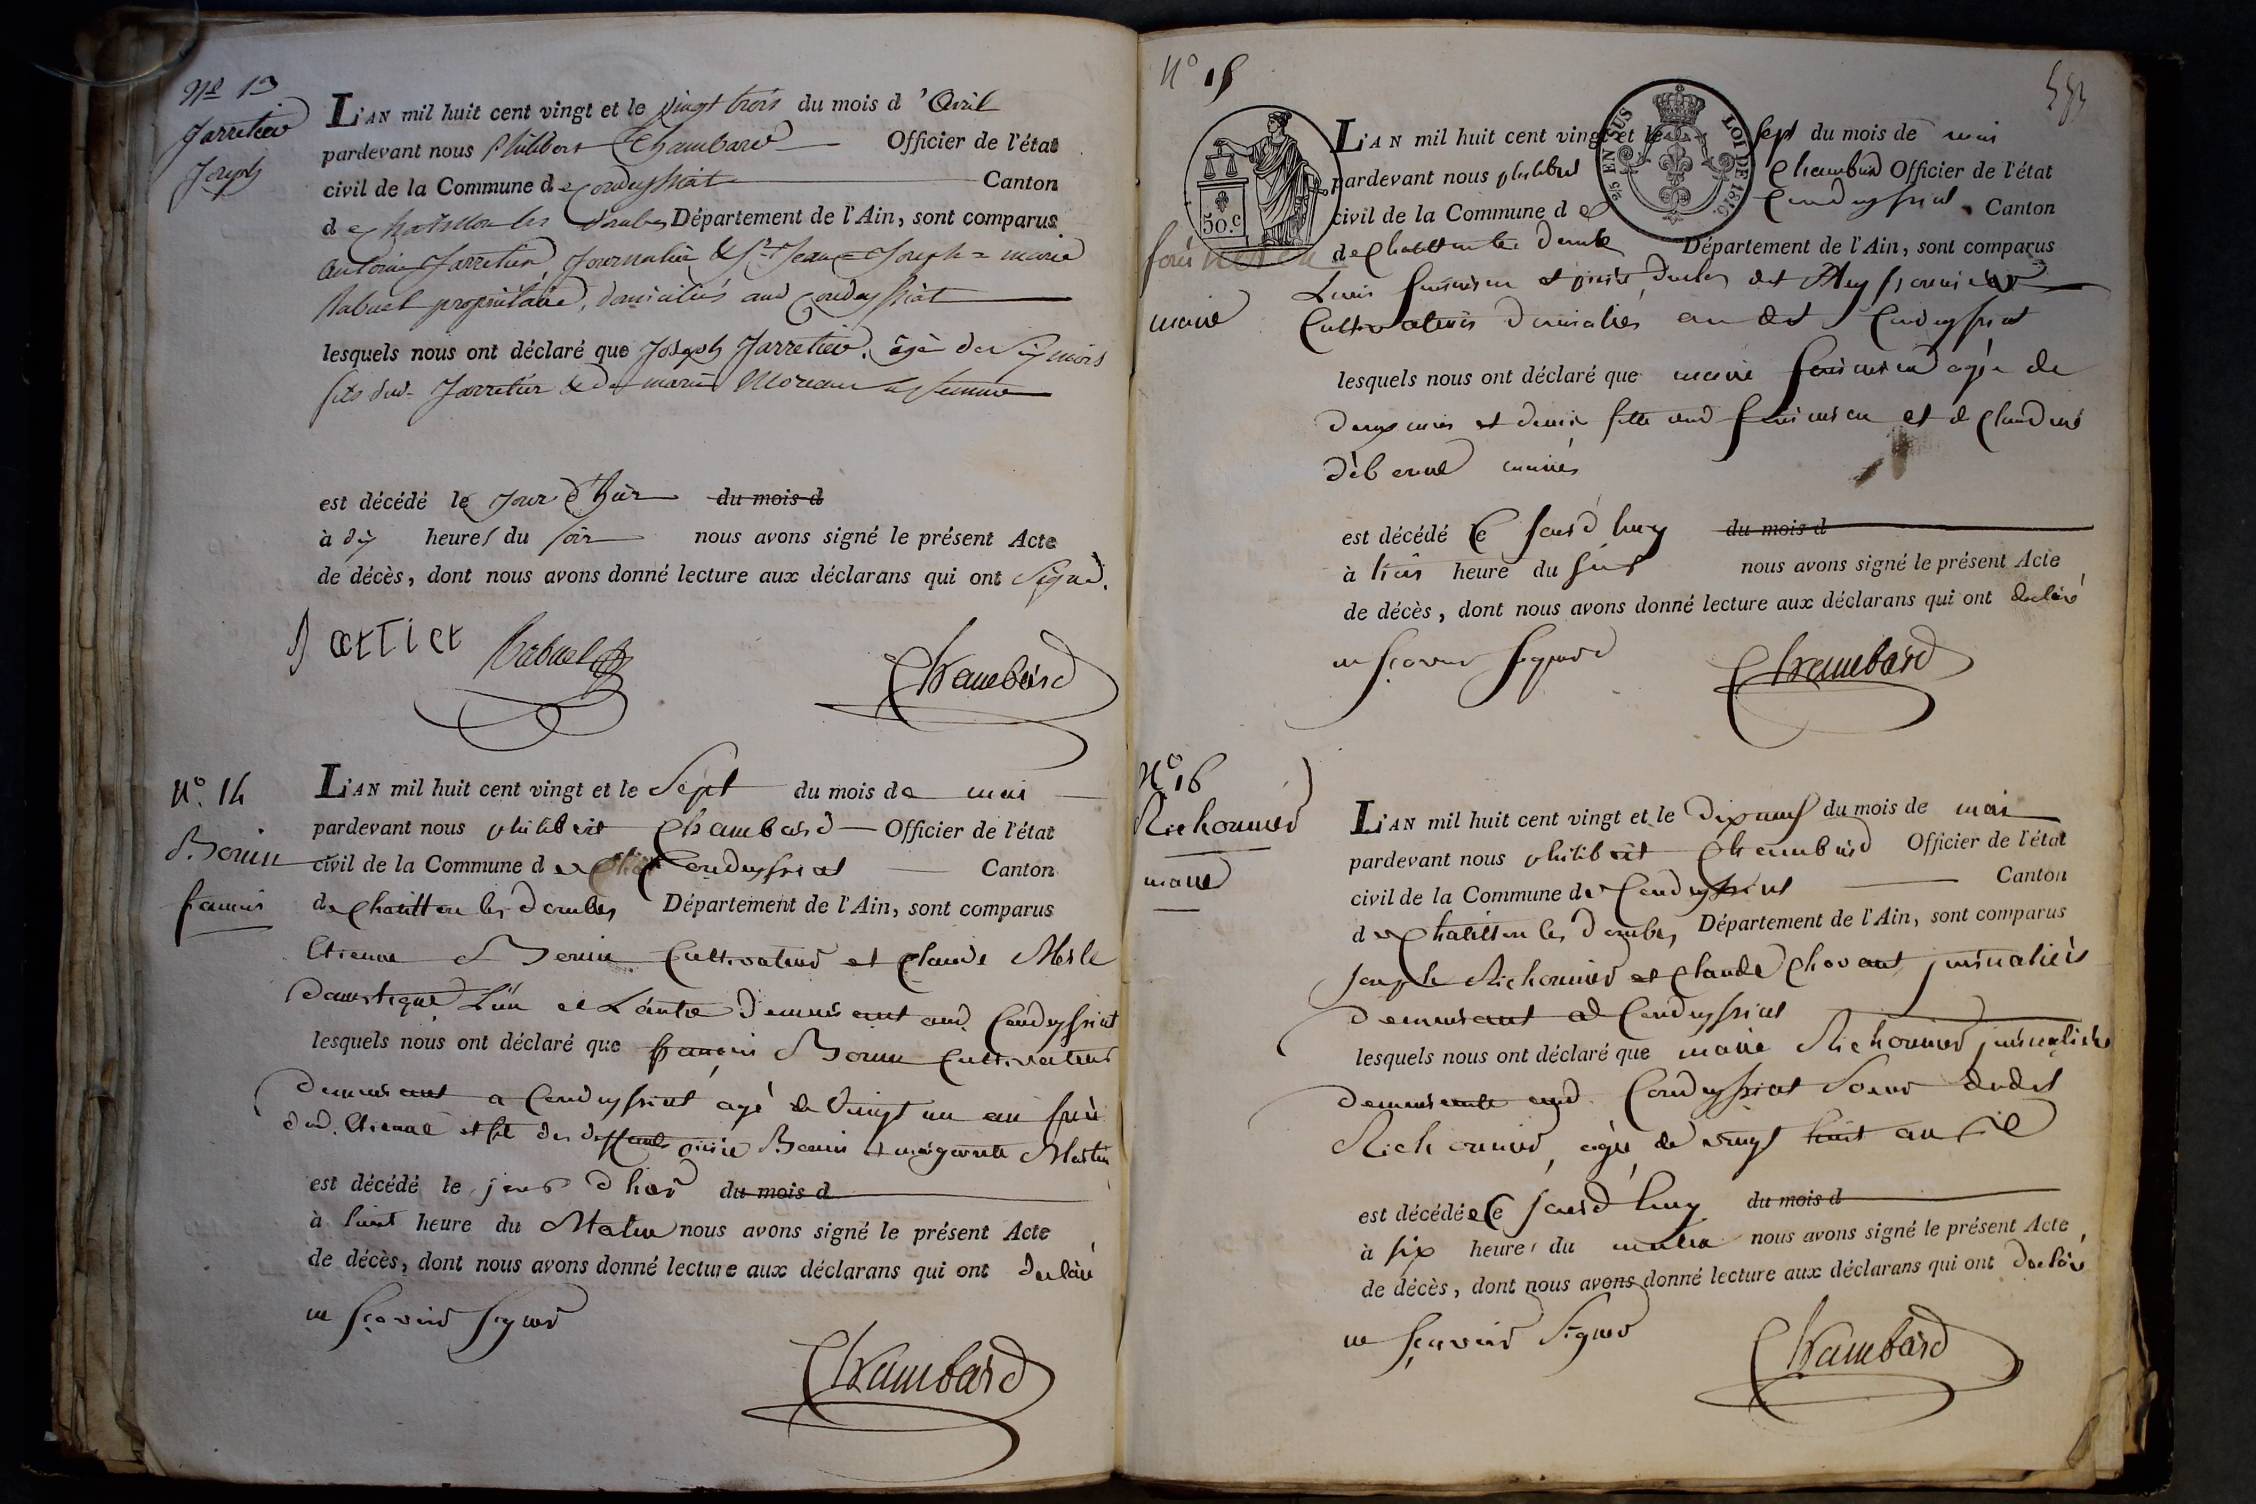 N.º 13
Jarretier
Joseph
L'AN mil huit cent vingt et le vingt trois du mois d'Avril
pardevant nous Philibert Chambard Officier de l'état
civil de la Commune de Condeyssiat Canton
de Chatillon les Dombes Département de l'Ain, sont comparus
Antoine Jarretier, Journalier & Sr Jean=Joseph=marie
Rabuel propriétaire, domiciliés aud Condeyssiat
lesquels nous ont déclaré que Joseph Jarretier, âgé de Six mois
fils dud. Jarretier & de marie Moreau sa femme
est décédé le Jour d'hier du mois d
à dix heures du soir nous avons signé le présent Acte
de décès, dont nous avons donné lecture aux déclarans qui ont Signé.
Rabuel Chambard
N.º 14
Borin
francois
L'AN mil huit cent vingt et le Sept du mois de mai
pardevant nous philibert Chambard Officier de l'état
civil de la Commune de Condeyssiat Canton
de Chatillon les Dombes Département de l'Ain, sont comparus
Etienne Borin Cultivateur et Claude Merle
domestique L'un et L'autre demeurant aud. Condeyssiat
lesquels nous ont déclaré que francois Borin Cultivateur
demeurant a Condeyssiat, agé de Vingt un an frère
dud. Etienne et fils des deffunts Borin et margueritte Martin
est décédé le jour d'hier du mois d
à huit heure du Matin nous avons signé le présent Acte
de décès, dont nous avons donné lecture aux déclarans qui ont declaré
ne sçavoir signer
Chambard
N.º 15
50.c
2/5 EN SUS LOI DE 1816.
marie
L'AN mil huit cent vingt et le Sept du mois de mai
pardevant nous philibert Chambard Officier de l'état
civil de la Commune de Condeyssiat Canton
de Chatillon les Dombes Département de l'Ain, sont comparus
Louis et
Cultivateurs domiciliés au dit Condeyssiat
lesquels nous ont déclaré que marie agée de
deux mois et demie fille dud et de Claudine
mariés
est décédé Ce Jourd'huy du mois d
à trois heure du soir nous avons signé le présent Acte
de décès, dont nous avons donné lecture aux déclarans qui ont declaré
ne sçavoir signer
Chambard
N.º 16
Richonnier
marie
L'AN mil huit cent vingt et le Dix neuf du mois de mai
pardevant nous philibert Chambard Officier de l'état
civil de la Commune de Condeyssiat Canton
de Chatillon les Dombes Département de l'Ain, sont comparus
Joseph Richonnier et Claude journaliers
demeurant a Condeyssiat
lesquels nous ont déclaré que marie Richonnier journalière
demeurante aud. Condeyssiat Soeur dudit
Richonnier, agée de vingt huit an
est décédée Ce Jourd'huy du mois d
à six heure du matin nous avons signé le présent Acte
de décès, dont nous avons donné lecture aux déclarans qui ont declaré
ne sçavoir Signer
Chambard